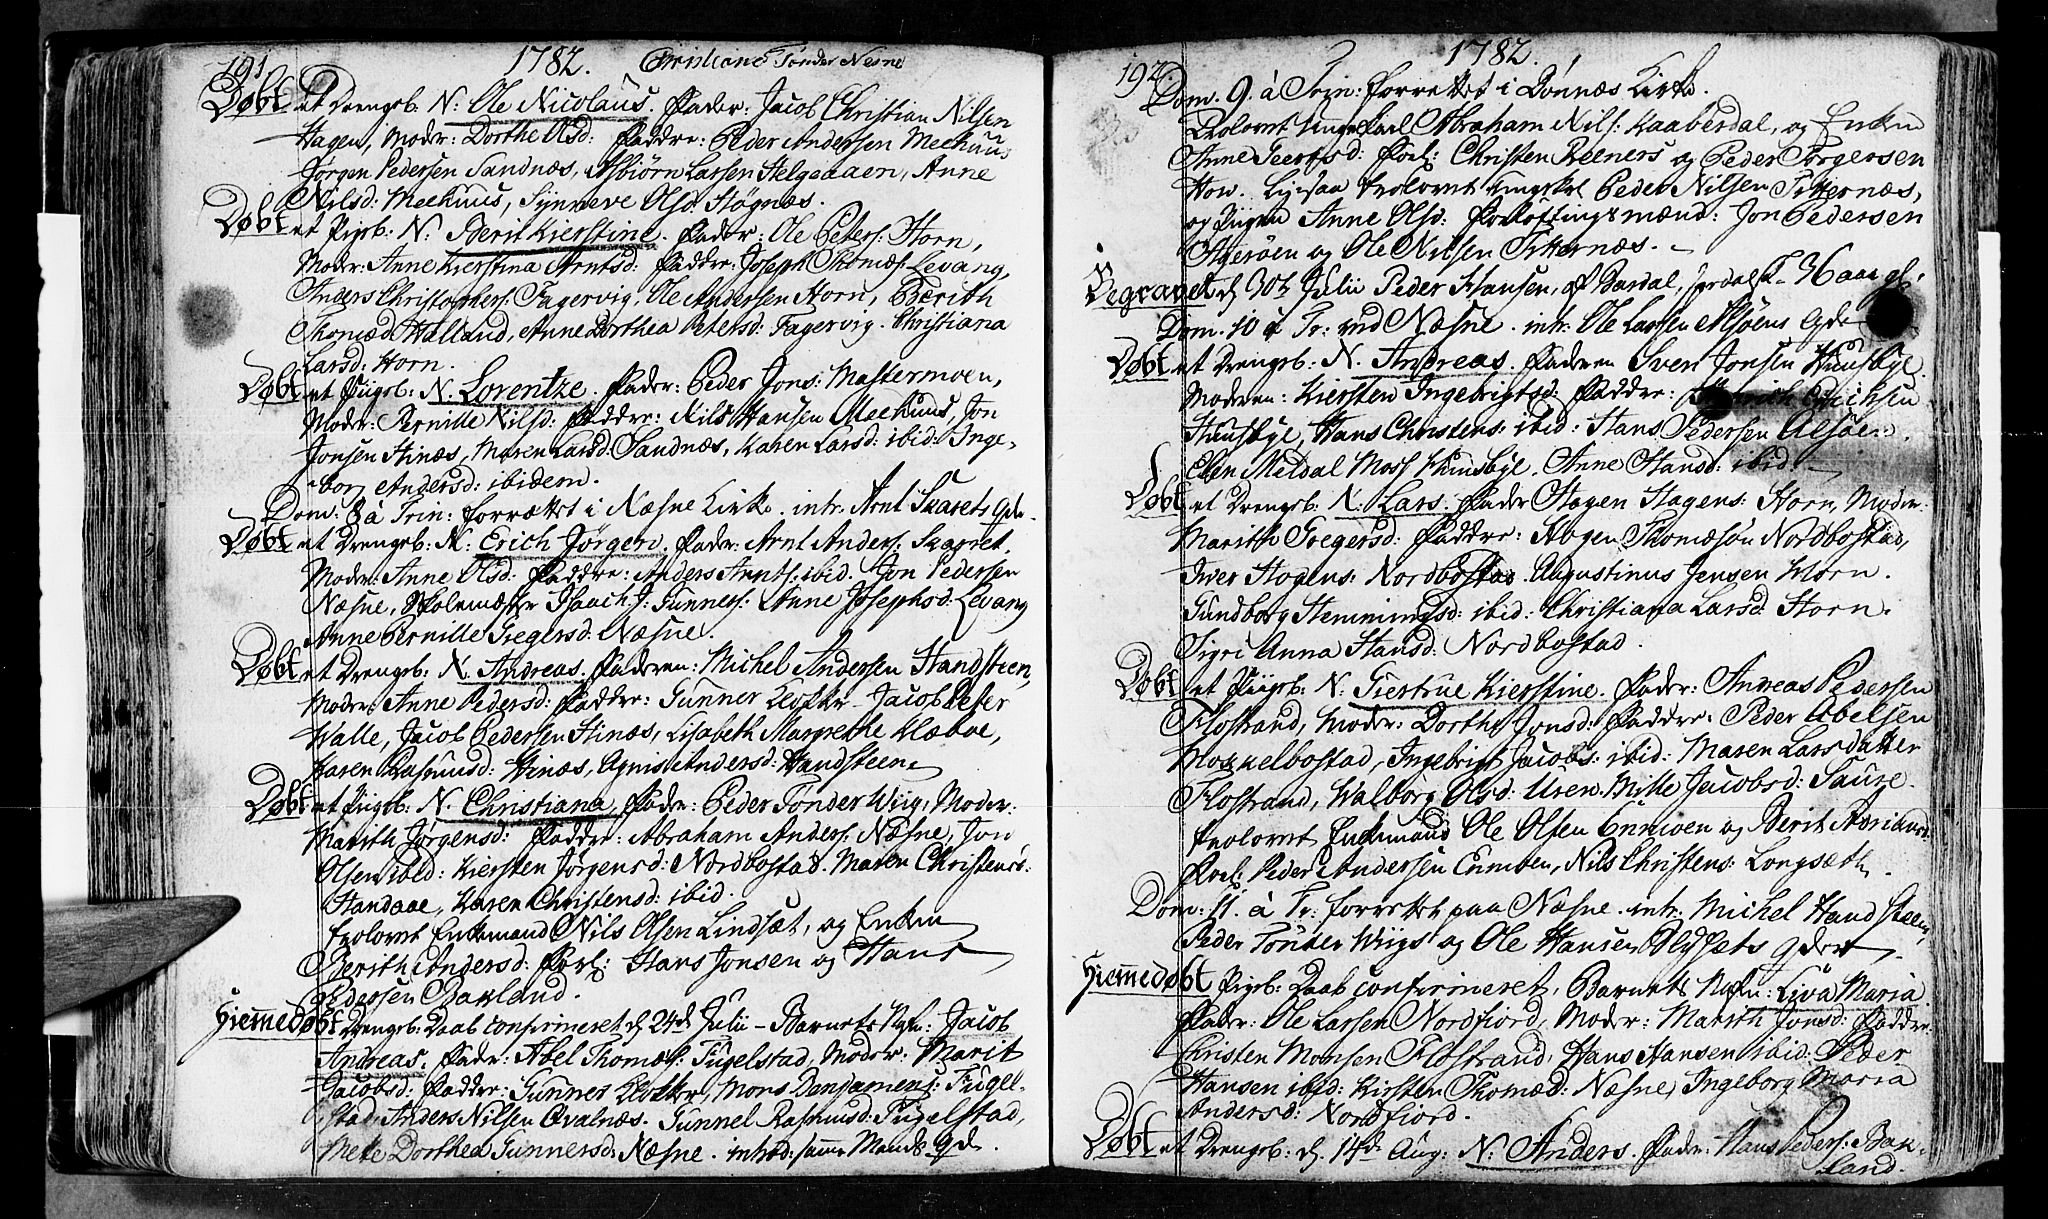 191
1782. Christiane Tønder Nesne
Døbt et Drengeb: N: Ole Nicolaus. Fader: Jacob Christian Nilsen
Hagen, Moder: Dorthe Olsd: Faddre: Peder Andersen Meehuus
Jørgen Pedersen Sandnæs, Asbiørn Larsen Helgaaen, Anne
Nilsd: Meehuus, Synneve Olsd: Høgnæs.
Døbt et Pigeb: N: Berit Kierstine. Fader: Ole Peters: Horn,
Moder: Anne Kierstina Arntsd: Faddre: Joseph Thomæs: Levang,
Anders Christophers: Fagervig, Ole Andersen Horn, Berith
Thomæd: Walland, Anne Dorthea Petersd: Fagervig. Christiana
Larsd: Horn.
Døbt et Piigeb: N. Lorentze. Fader: Peder Jons: Mastermoen,
Moder: Pernille Nilsd: Faddre: Nils Hansen Meehuus, Jon
Jonsen Hinæs, Maren Larsd: Sandnæs, Karen Larsd: ibid: Inge-
borg Andersd: ibidem.
Dom: 8 à Trin: forrettet i Næsne Kirke. intr: Arnt Skarets qde
Døbt et Drengeb: N. Erich Jørgen. Fader: Arnt Anders: Skarret.
Moder: Anne Olsd: Faddre: Anders Arnts: ibid. Jon Pedersen
Næsne, Skolemester Isaach J: Gunners: Anne Josephsd: Levang
Anne Pernille Gregersd: Næsne.
Døbt et Drengeb: N. Andreas. Faderen: Michel Andersen Handsteen,
Moder: Anne Pedersd: Faddre: Gunner Klokker Jacob Peter
Walle, Jacob Pedersen Hinæs, Lisabeth Margrethe Klæboe,
Karen Rasmusd: Hinæs, Agnis Andersd: Handsteen.
Døbt et Piigeb: N. Christiana. Fader: Peder Tønder Wiig, Moder:
Marith Jørgensd: Faddre: Abraham Anders: Næsne, Jon
Olsen ibid: Kiersten Jørgensd: Nordbostad. Maren Christensd:
Handaae, Karen Christensd: ibid.
Trolovet Enkemand Nils Olsen Lindsæt, og Enken
Berith Andersd: Forl: Hans Jonsen og Hans
Pedersen Bakland.
Hiemmedøbt Drengeb: Daab confirmeret d. 24d Julii - Barnets Nafn: Jacob
Andreas. Fader: Abel Thomæs: Fugelstad, Moder: Marit
Jacobsd: Faddre: Gunner Klokker, Mons Fugel-
stad, Anders Nilsen Qvalnæs. Gunnel Rasmusd: Fugelstad,
Mette Dorthea Gunnersd: Næsne. introd: samme Mands qde.
192.
1782.
Dom. 9. à Trin: forrettet i Dønnæs Kirke.
Trolovet Ungekarl Abraham Nils: Kaaberdal, og Enken
Anne Geertsd: Forl: Christen Reeners og Peder Jørgersen
How. Ligesaa trolovet Ungekarl Peder Nilsen Titternæs,
og Pigen Anne Olsd: Forløftningsmænd: Jon Pedersen
Aagerøen og Ole Nilsen Titternæs.
Begravet d. 30te Julii Peder Hansen, af Bardal, 36 aar gl.
Dom. 10 à Tr: ved Næsne. intr: Ole Larsen Alsøens Qde
Døbt et Drengeb: N. Andreas. Faderen Sven Jonsen Huusbye.
Moderen: Kiersten Ingebrigtsd: Faddre: Eriksen
Huusbye, Hans Christens: ibid: Hans Pedersen Alsøen.
Elen Meldal Moss Huusbye. Anne Hansd: ibid.
Døbt et Drengeb: N. Lars. Fader Hagen Hagens: Horn, Moder:
Marith Gregersd: Faddre: Hagen Thomæsøn Nordbostad,
Iver Hagens: Nordbostad. Augustinus Jensen Horn.
Gundborg Hemmingsd: ibid: Christiana Larsd: Horn.
Sigri Anna Hansd: Nordbostad.
Døbt et Piigeb: N: Giertrue Kierstine. Fader: Andreas Pedersen
Flostrand, Moder: Dorthe Jonsd: Faddre: Peder Abelsen
Moskelbostad, Ingebrigt Jacobs: ibid: Maren Larsdatter
Flostrand, Walborg Olsd: Uren. Mille Jacobsd: Saure.
Trolovet Enkemand Ole Olsen Enmoen og Berit Adriansd:
Forl: Peder Andersen Enmoen, Nils Christens: Longsæth.
Dom: 11. à Tr: forrettet paa Næsne. intr: Michel Handsteen,
Peder Tønder Wiigs og Ole Hansen Qder.
Hiemmedøbt Pigeb: Daab confirmeret, Barnets Nafn: Liva Maria
Fader: Ole Larsen Nordfiord, Moder: Marith Jonsd: Faddre:
Christen Monsen Flostrand, Hans Hansen ibid: Peder
Hansen ibid: Kirsten Thomæd: Næsne, Ingeborg Maria
Andersd: Nordfiord.
Døbt et Drengeb: d. 14de Aug: N: Anders. Fader: Hans Peders: Bak-
land.